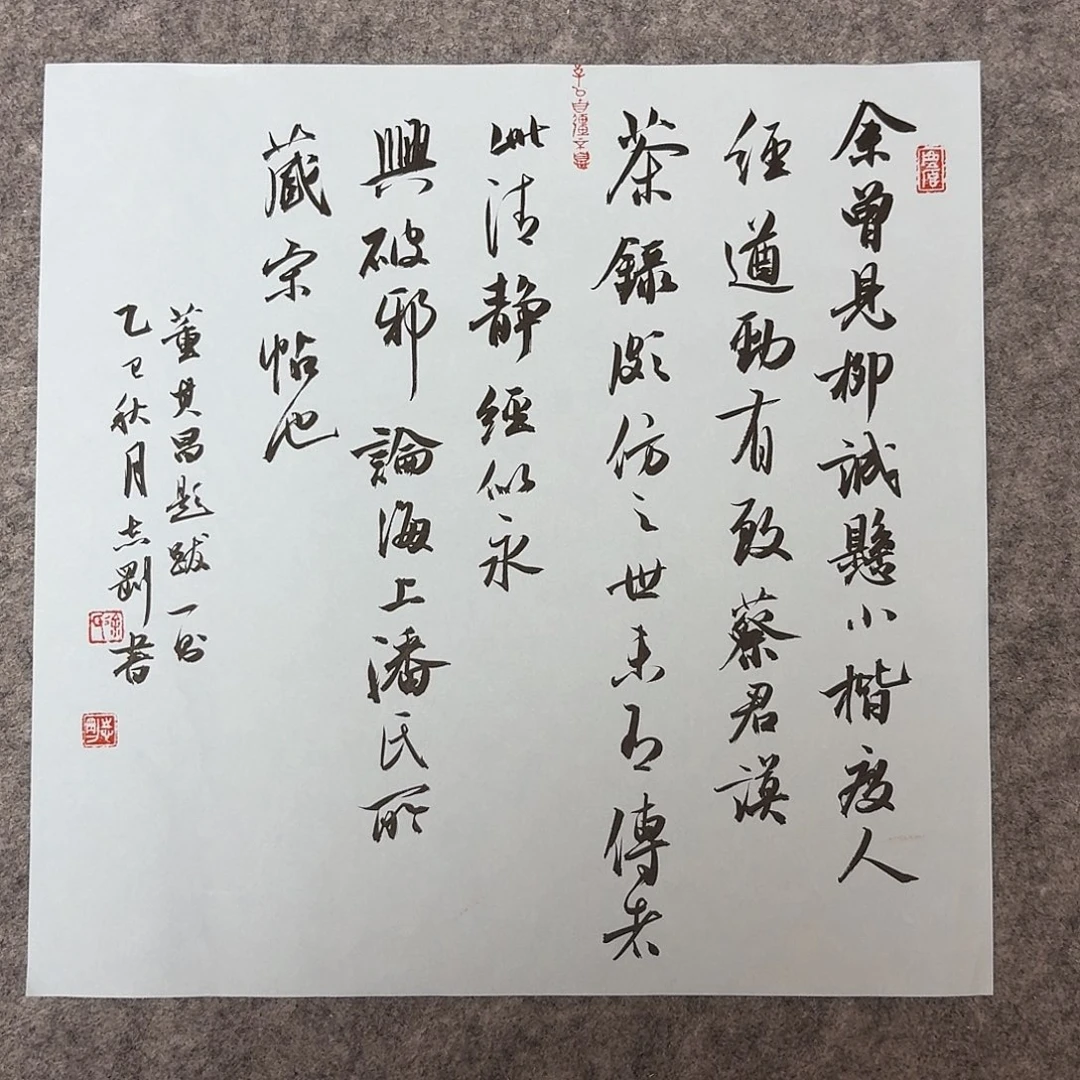 余曾見柳誠懸小楷度人
經遒勁有致蔡君謨
茶錄頗仿之世未有傳者
此清靜經似永
興破邪論海上潘氏所
藏宋帖也
董其昌題跋一則
乙巳秋月志剛書